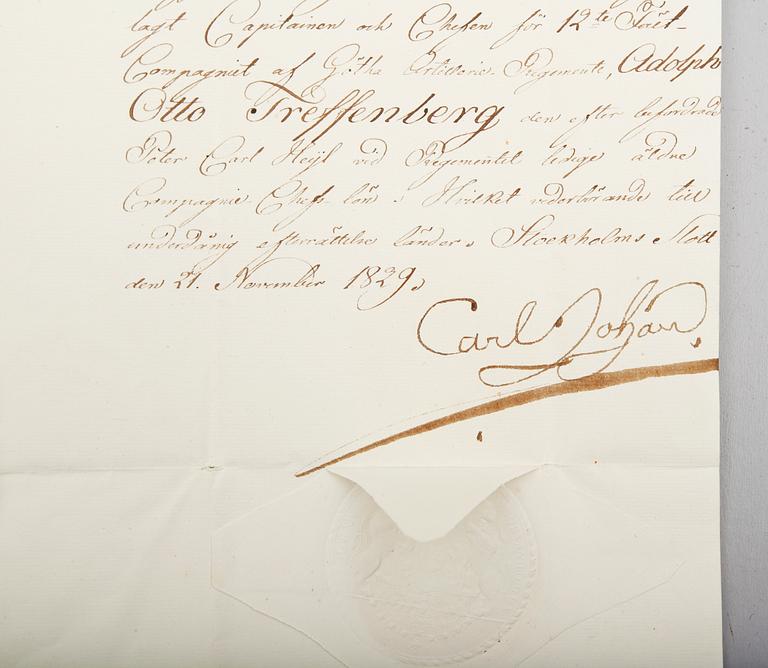 lagt Capitainen och Chefen för 12te Föret-
Compagniet af Götha Artillerie-Regemente, Adolph
Otto Treffenberg den efter befordrade
Peter Carl Heijl vid Regementet ledige äldre
Compagnie Chefs-lön. Hvilket vederbörande till
underdånig efterrättelse länder. Stockholms Slott
den 21. November 1829.
Carl Johan